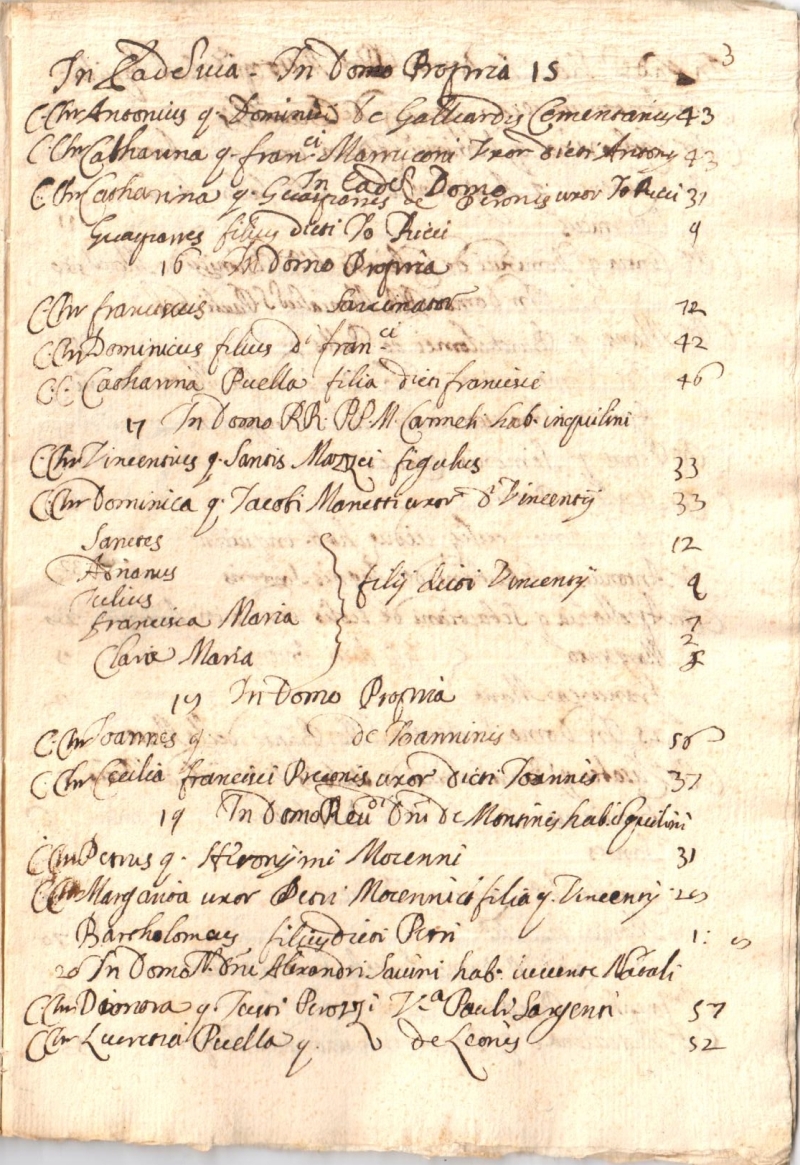 3
In Eadem via - In Domo Propria 15
C. Chr Antonius q. Dominici de Galliardis Cementarius 43
C Chr Catharina q. Fran.ci Marruconi Uxor dicti Antony 43
In Eadem Domo
C. Chr Catharina q. de Peronis uxor Jo Ricci 31
filius dicti Jo Ricci 9
16 In Domo Propria
C Chr Franciscus Sarcinator 72
C Chr Dominicus filius d.i Fran.ci 42
C. C. Catharina Puella filia dicti Francisci 46
17 In Domo RR. PP. M. Carmeli hab. inquilini
C Chr Vincentius q. Santis Mazzei figulus 33
C Chr Dominica q. Jacobi Manetti uxor d.i Vincentij 33
Sanctes 12
Adrianus filij dicti Vincentij 9
Julius
Francisca Maria 7
Clara Maria 2
In Domo Propria
C. Chr Joannes q. de Joanninis 56
C. Chr Cecilia Francisci Preconis uxor dicti Joannis 37
19 In Domo Reu.di Dni de Montinis hab. Inquilini
C Chr Petrus q. Hieronijmi Mocenni 31
C Chr Margarita uxor Petri Mocennici filia q. Vincentij
Bartholomeus filius dicti Petri 1:
20 In Domo Dni Alexandri Sauini hab.
C Chr q. Perozzi V.a Pauli Sargenti 57
C Chr Lucretia Puella q. de Leonis 52